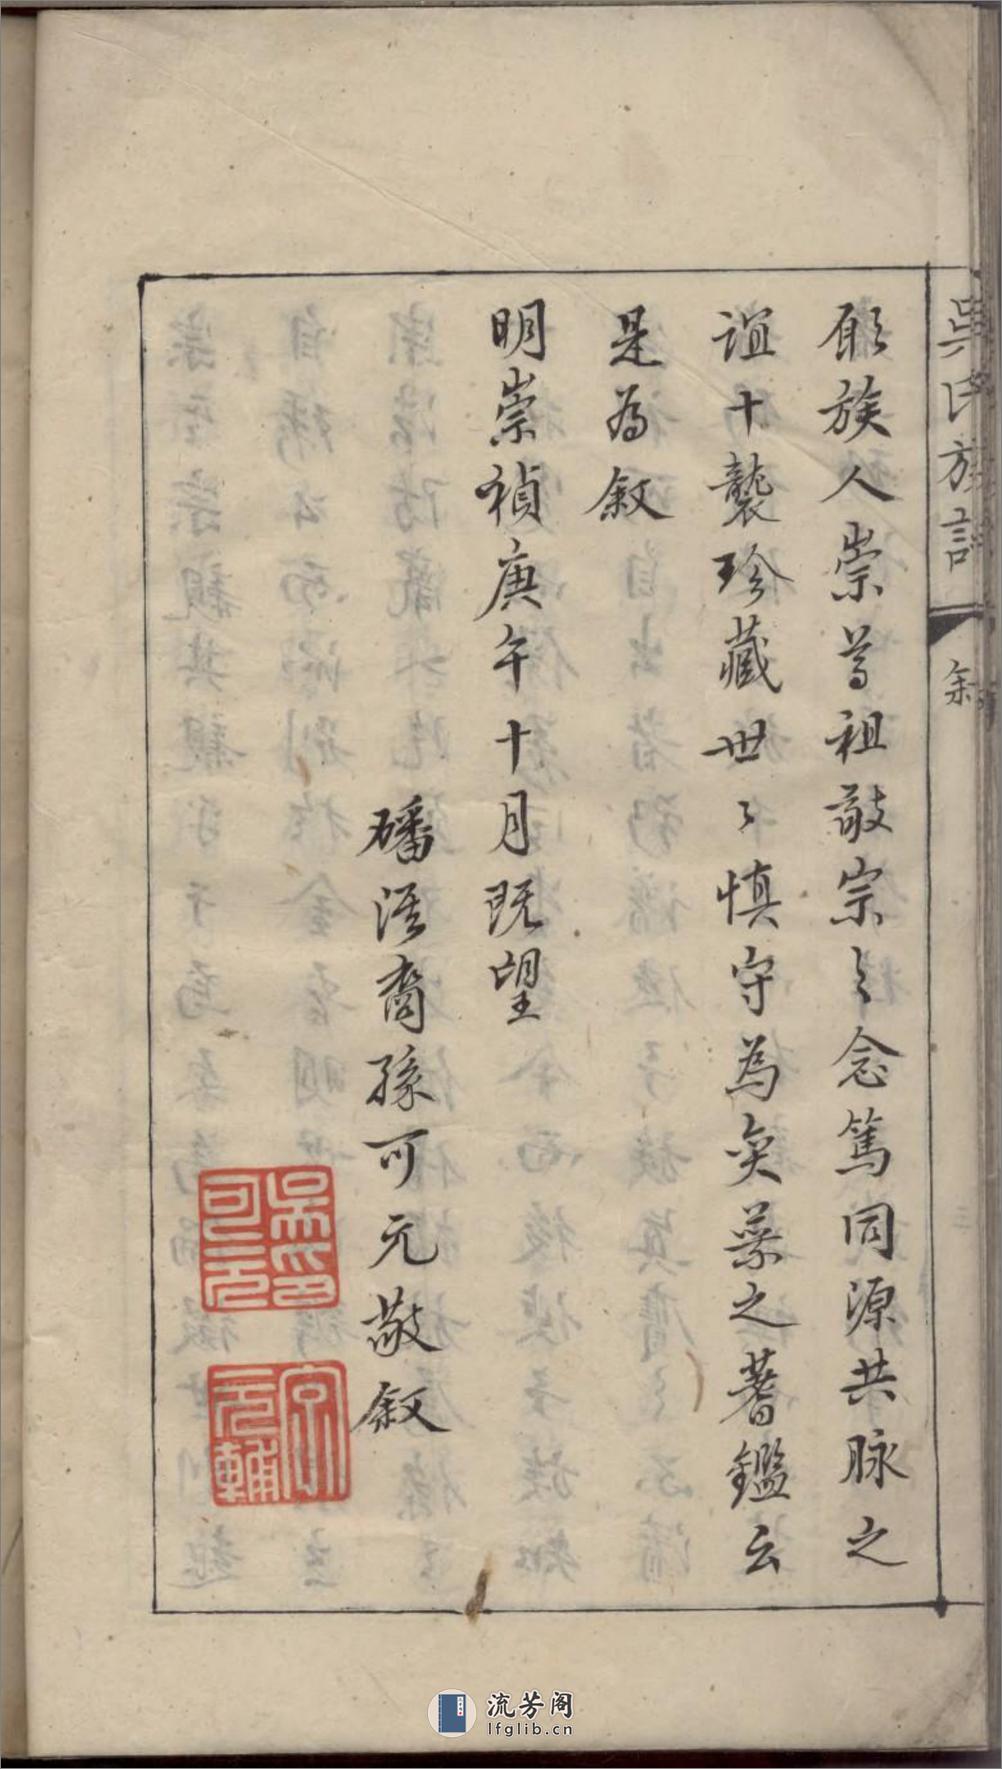 吳氏族譜 叙
願族人崇尊祖敬宗之念篤同源共脉之
誼十襲珍藏世〻慎守為奕葉之蓍鑑云
是為叙
明崇禎庚午十月既望
磻溪裔孫可元敬叙
吳可元印
元輔
流芳阁
lfglib.cn